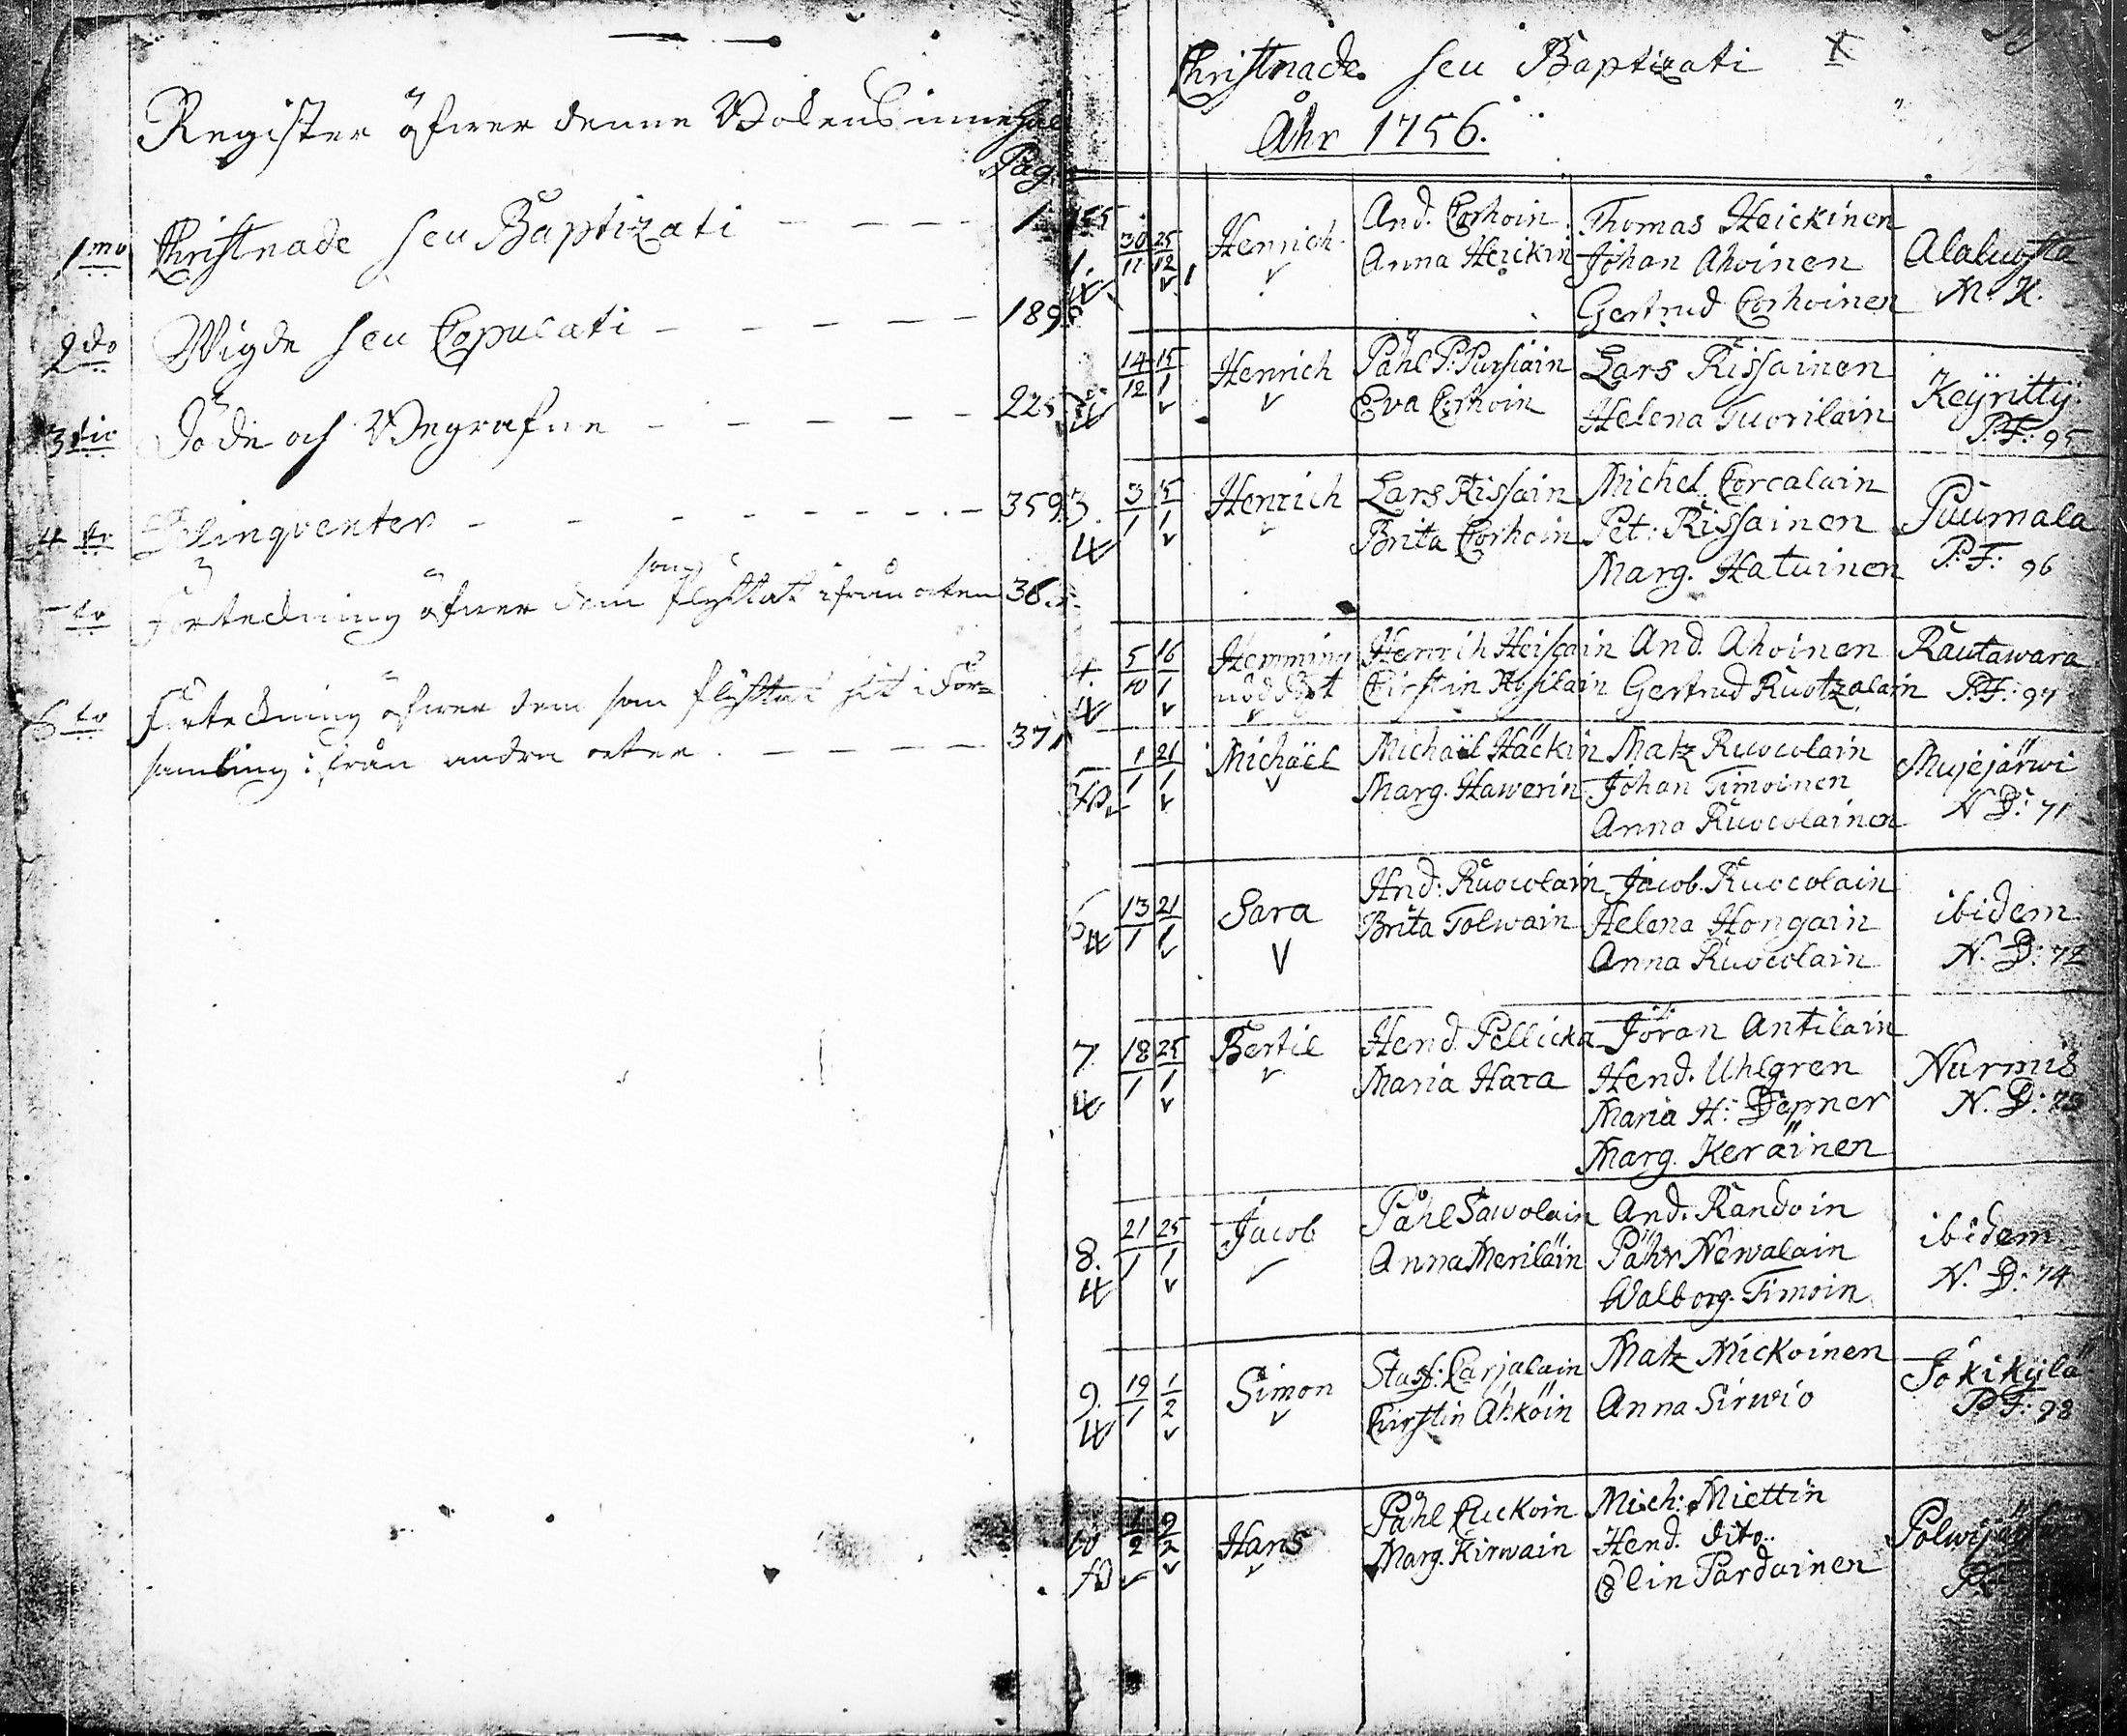 Register öfwer denne Bokens innehåll
Pag.
1mo Christnade seu Baptizati 1
2do Wigde seu Copulati 189
3tio Döde och Begrafne 225
4to Delinqventer 359
5to Förteckning öfwer dem som flyttat ifrån orten 36
6to Förteckning öfwer dem som flyttat hit i För=
samling ifrån andra orter. 371
Christnade seu Baptizati
Åhr 1756.
1. 30/11 25/12 Henrich And. Corhoin Thomas Heickinen Alaluosta
Anna Heickin Johan Ahoinen M. K.
Gertrud Corhoinen
14/12 15/1 Henrich Påhl P. Pursiain Lars Rissainen Keyritty
Eva Corhoin Helena Tuorilain P.F: 95
3. 3/1 5/1 Henrich Lars Rissain Michel Corcalain Puumala
Brita Corhoin Pet: Rissainen P:F: 96
Marg. Hatuinen
4. 5/10 16/1 Hemming Henrich Heiscain And. Ahoinen Rautawara
nöddöpt Cirstin Kysilain Gertrud Ruotzalain P.F: 97
1/1 21/1 Michaël Michaël Häckin Matz Ruocolain Mujejärwi
Marg. Hawerin Johan Timoinen N D: 71
Anna Ruocolainen
6 13/1 21/1 Sara And: Ruocolain Jacob Ruocolain ibidem
Brita Tolwain Helena Hongain N. D: 72
Anna Ruocolain
7. 18/1 25/1 Bertil Hend. Pellicka Jöran Antilain Nurmis
Maria Hara Hend. Uhlgren N. D: 73
Maria H: Depner
Marg. Keräinen
8. 21/1 25/1 Jacob Påhl Sawolain And. Randoin ibidem
Anna Meriläin Påhr Newalain N. D: 74
Walborg Timoin
9. 19/1 1/2 Simon Staf: Carjalain Matz Mickoinen Jokikylä
Cirstin Ahköin Anna Sirwio P.F: 98
10 1/2 9/2 Hans Påhl Cuckoin Mich: Miettin
Marg. Kirwain Hend. dito
Elin Pardainen